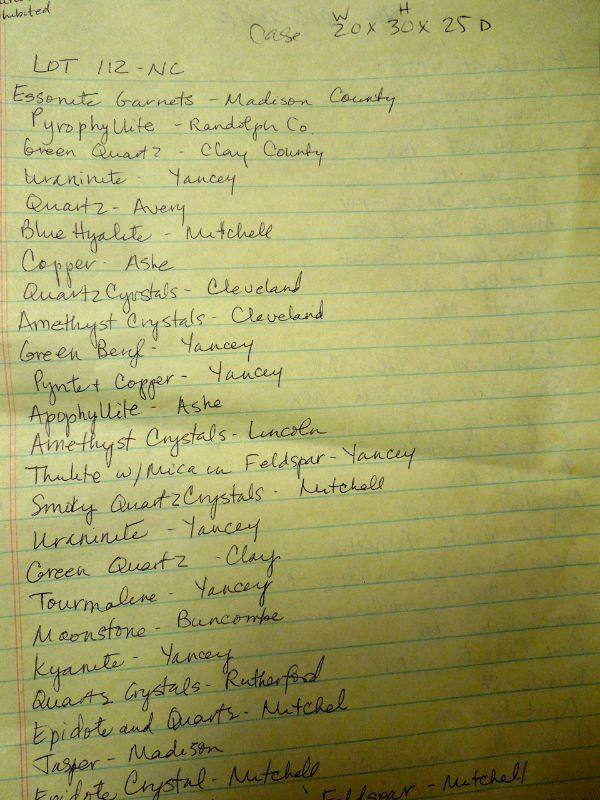 hibited
Case W 20 x H 30 x 25 D
LOT 112 - NC
Essonite Garnets - Madison County
Pyrophyllite - Randolph Co.
Green Quartz - Clay County
Uraninite - Yancey
Quartz - Avery
Blue Hyalite - Mitchell
Copper - Ashe
Quartz Cyrstals - Cleveland
Amethyst Crystals - Cleveland
Green Beryl - Yancey
Pyrite + Copper - Yancey
Apophyllite - Ashe
Amethyst Crystals - Lincoln
Thulite w/ Mica in Feldspar - Yancey
Smoky Quartz Crystals - Mitchell
Uraninite - Yancey
Green Quartz - Clay
Tourmaline - Yancey
Moonstone - Buncombe
Kyanite - Yancey
Quartz Crystals - Rutherford
Epidote and Quartz - Mitchel
Jasper - Madison
Epidote Crystal - Mitchell
Feldspar - Mitchell